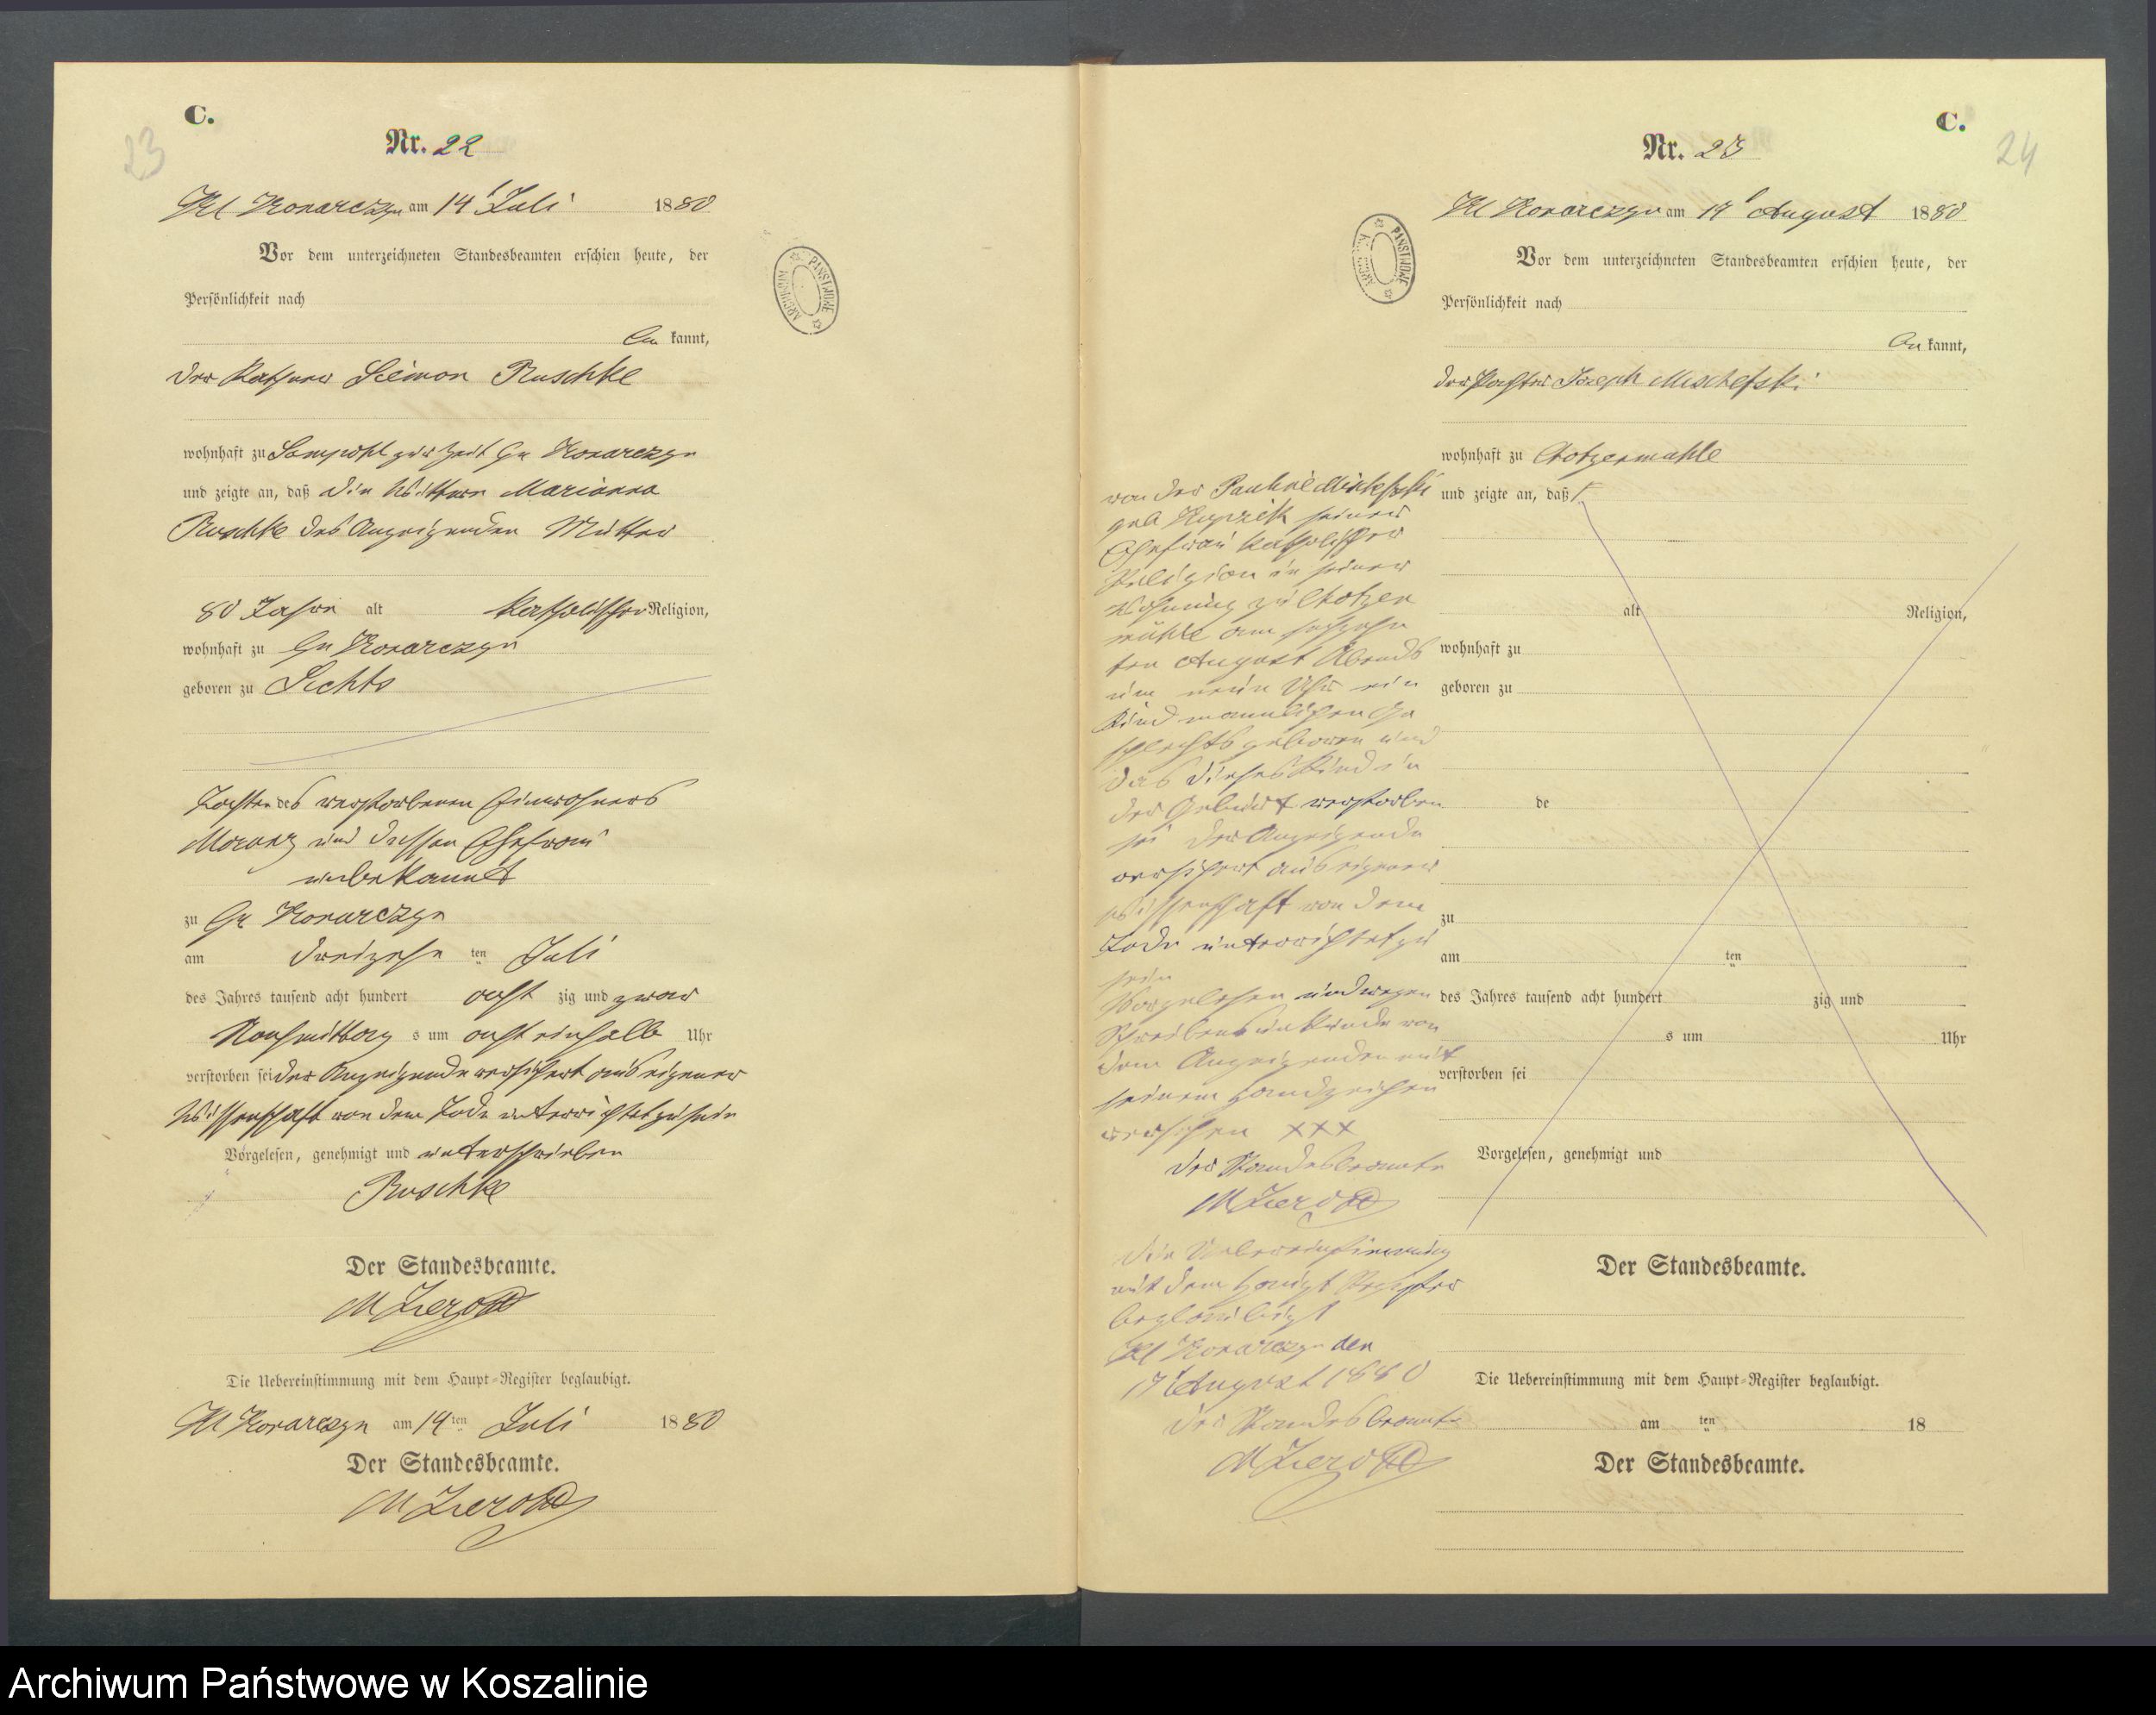 C.
23
Nr. 22
Kl Konarczyn am 14t Juli 1880
Vor dem unterzeichneten Standesbeamten erschien heute, der
Persönlichkeit nach
be kannt,
der Kathner Siemon Ruschke
wohnhaft zu Sampohl zur Zeit Gr Konarczyn
und zeigte an, daß die Wittwe Marianna
Ruschke des Anzeigenden Mutter
80 Jahre alt katholischer Religion,
wohnhaft zu Gr Konarczyn
geboren zu
Tochter des verstorbenen Einwohners
und dessen Ehefrau
unbekannt
zu Gr Konarczyn
am dreizehn ten Juli
des Jahres tausend acht hundert acht zig und zwar
Nachmittag s um acht einhalb Uhr
verstorben sei der Anzeigende versichert aus eigener
Wissenschaft von dem Tode unterrichtet zu sein
Vorgelesen, genehmigt und unterschrieben
Ruschke
Der Standesbeamte.
Die Uebereinstimmung mit dem Haupt-Register beglaubigt.
Kl Konarczyn am 14ten Juli 1880
Der Standesbeamte.
C.
24
Nr. 23
Kl Konarczyn am 17t August 1880
Vor dem unterzeichneten Standesbeamten erschien heute, der
Persönlichkeit nach
be kannt,
der Pächter Joseph
wohnhaft zu
und zeigte an, daß
alt Religion,
wohnhaft zu
geboren zu
de
zu
am ten
des Jahres tausend acht hundert zig und
s um Uhr
verstorben sei
Vorgelesen, genehmigt und
Der Standesbeamte.
Die Uebereinstimmung mit dem Haupt-Register beglaubigt.
am ten 18
Der Standesbeamte.
von der Pauline
geb seiner
Ehefrau katholischer
Religion in seiner
Wohnung zu
mühle am sechzehn
ten August Abends
um neun Uhr ein
Kind männlichen Ge
schlechts geboren und
das dieses Kind in
der Geburt verstorben
sei der Anzeigende
versichert aus eigener
Wissenschaft von dem
Tode unterrichtet zu
sein
Vorgelesen und wegen
Schreibensunkunde von
dem Anzeigenden mit
seinem Handzeichen
versehen XXX
der Standesbeamte
die Uebereinstimmung
mit dem Haupt Register
beglaubigt
Kl Konarczyn den
17t August 1880
der Standesbeamte
ARCHIWUM PAŃSTWOWE
ARCHIWUM PAŃSTWOWE
Archiwum Państwowe w Koszalinie